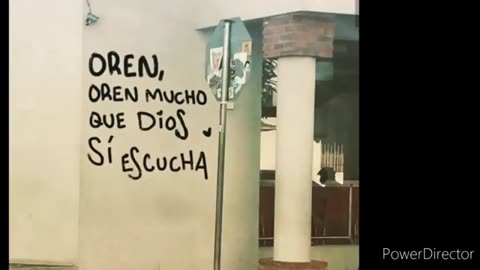 OREN,
OREN MUCHO
QUE DIOS
SÍ ESCUCHA
PowerDirector